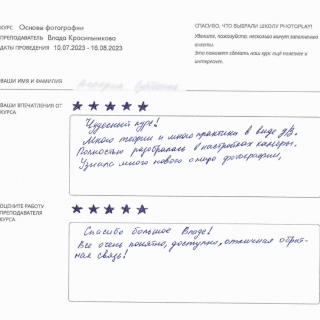 КУРС Основы фотографии
ПРЕПОДАВАТЕЛЬ Влада Красильникова
ДАТЫ ПРОВЕДЕНИЯ 10.07.2023 - 16.08.2023
СПАСИБО, ЧТО ВЫБРАЛИ ШКОЛУ PHOTOPLAY!
Уделите, пожалуйста, несколько минут заполнению
анкеты.
Это поможет сделать наш курс ещё полезнее и
интереснее.
ВАШИ ИМЯ И ФАМИЛИЯ
ВАШИ ВПЕЧАТЛЕНИЯ ОТ
КУРСА
Чудесный курс!
Много теории и много практики в виде ДЗ.
Полностью разобралась в настройках камеры.
Узнала много нового о мире фотографии.
ОЦЕНИТЕ РАБОТУ
ПРЕПОДАВАТЕЛЯ
КУРСА
Спасибо большое Владе!
Все очень понятно, доступно, отличная обрат-
ная связь!